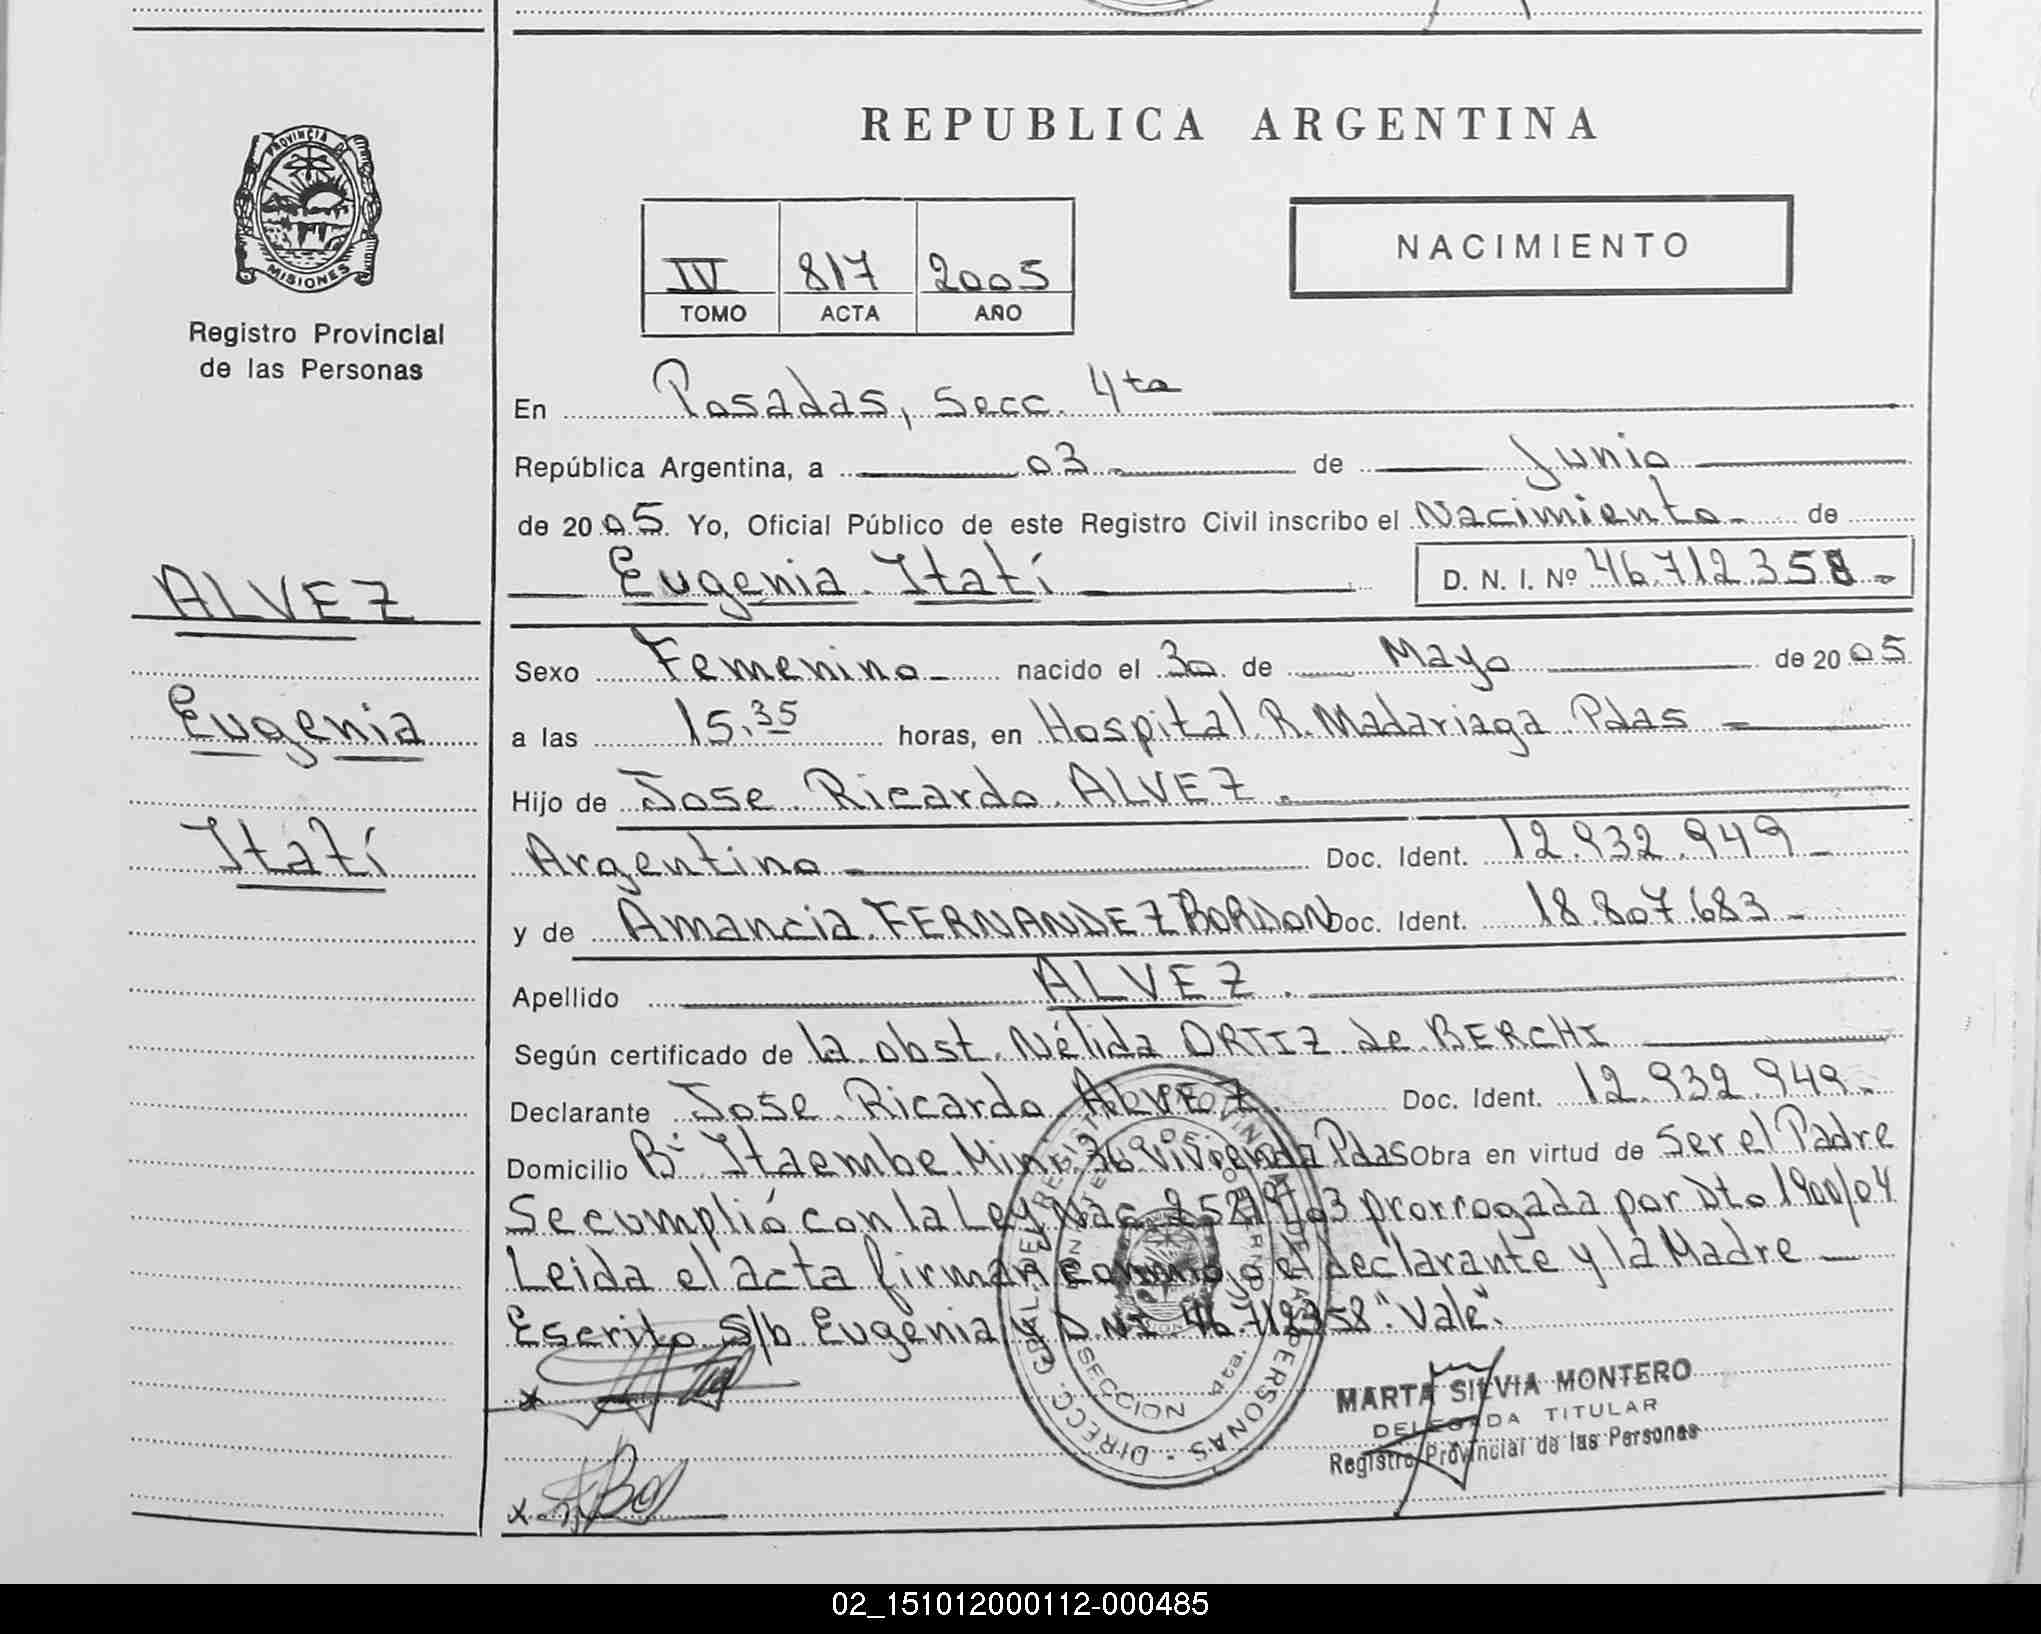 PROVINCIA DE
MISIONES
Registro Provincial
de las Personas
ALVEZ
Eugenia
Itatí
REPUBLICA ARGENTINA
IV 817 2005
TOMO ACTA AÑO
NACIMIENTO
En Posadas, Secc. 4ta
República Argentina, a 03 de Junio
de 2005. Yo, Oficial Público de este Registro Civil inscribo el Nacimiento de
Eugenia Itatí D. N. I. Nº 46.712.358
Sexo Femenino nacido el 30 de Mayo de 2005
a las 15.35 horas, en Hospital R. Madariaga Pdas
Hijo de Jose Ricardo ALVEZ.
Argentino Doc. Ident. 12.932.949
y de Amancia FERNANDEZ BORDON Doc. Ident. 18.807.683
Apellido ALVEZ.
Según certificado de la obst. Nélida ORTIZ de BERCHI
Declarante Jose Ricardo ALVEZ. Doc. Ident. 12.932.949
Domicilio Bº Itaembe Mini 36 Vivienda Pdas Obra en virtud de Ser el Padre
Se cumplió con la Ley Nac. 25819/03 prorrogada por Dto 1900/04
Leida el acta firman conmigo el declarante y la Madre
Escrito S/b Eugenia y D.N.I. 46.712358 "Vale".
MARTA SILVIA MONTERO
DELEGADA TITULAR
Registro Provincial de las Personas
SECCION 4ta.
02_151012000112-000485